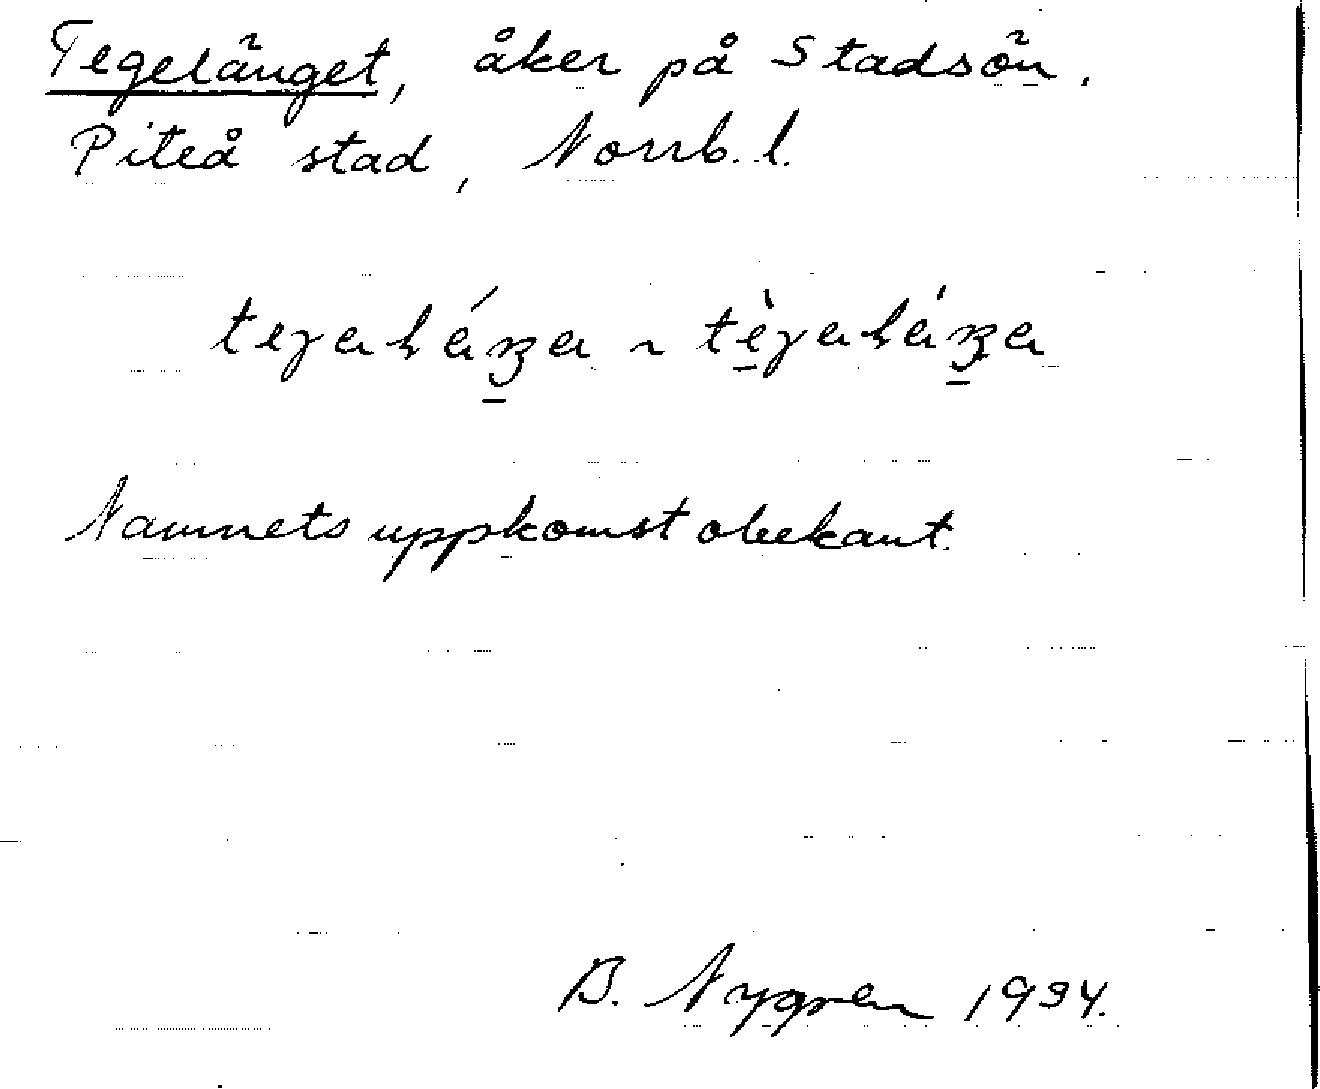 Tegelänget, åker på Stadsön.
Piteå stad, Norrb. l.
Namnets uppkomst obekant.
B. Nygren 1934.